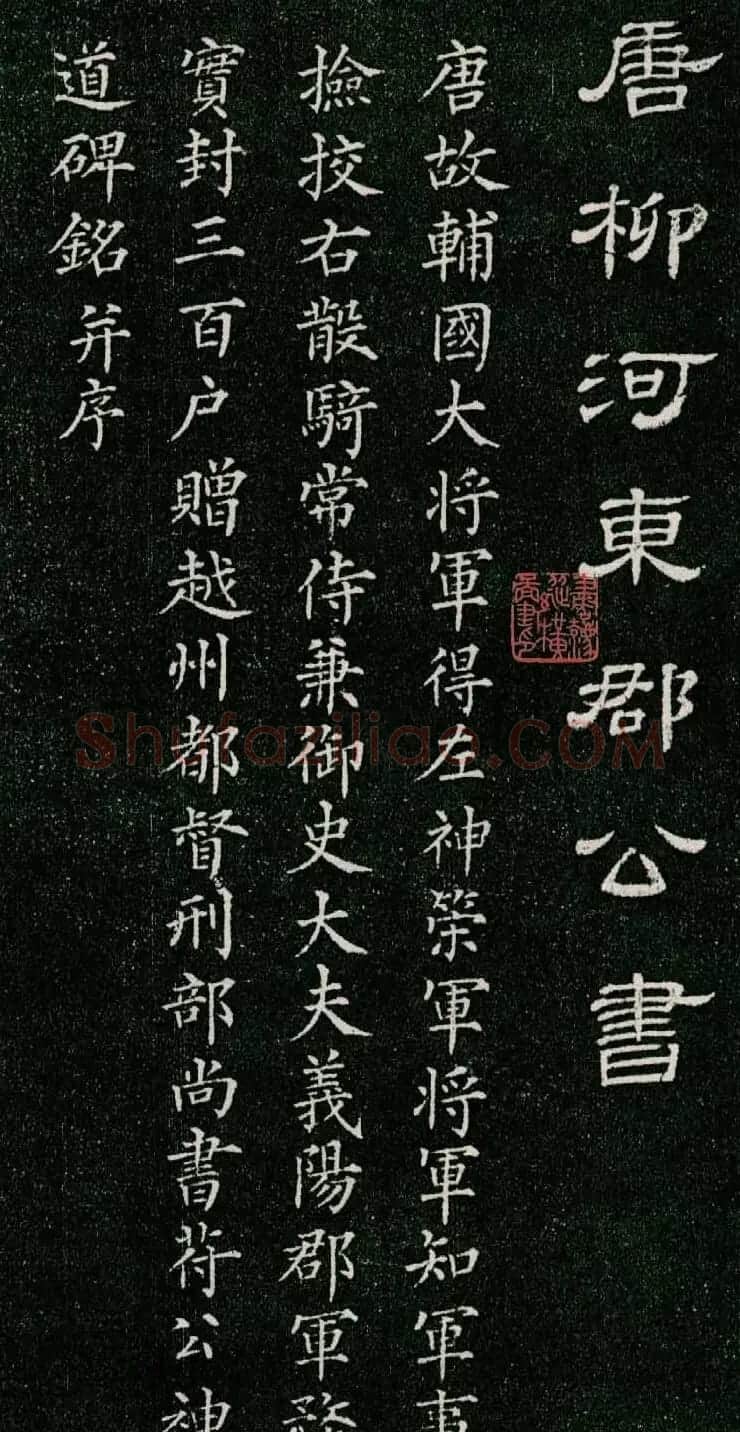 唐柳河東郡公書
唐故輔國大将軍得左神筞軍将軍知軍事
撿挍右散騎常侍兼御史大夫義陽郡軍
實封三百户贈越州都督刑部尚書苻公神
道碑銘并序
Shufaziliao.COM